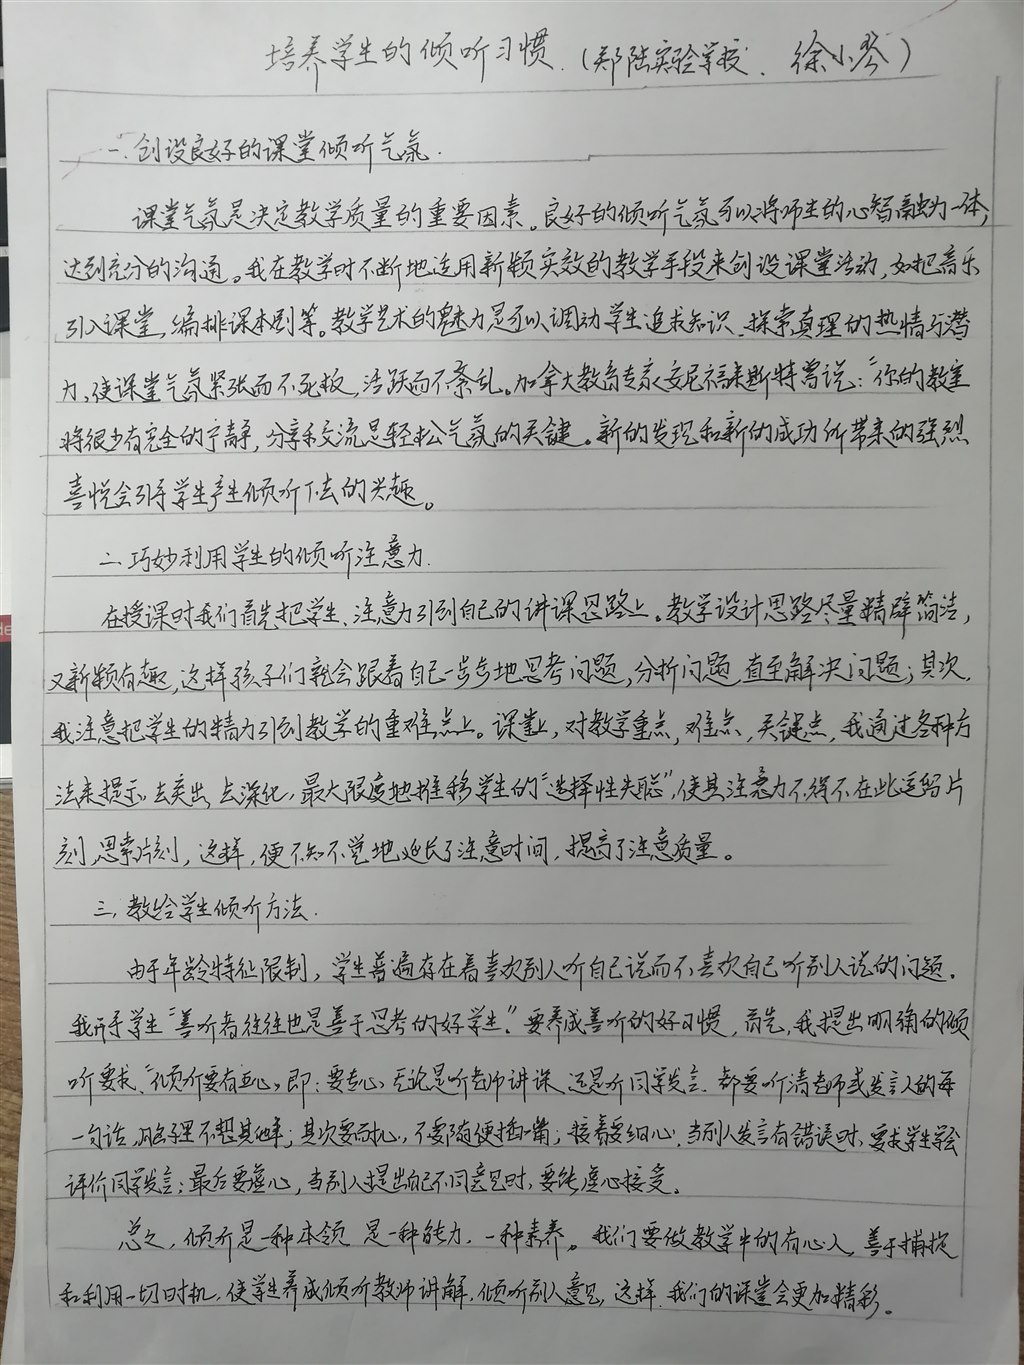 培养学生的倾听习惯.(郑陆实验学校. 徐小琴)
一.创设良好的课堂倾听气氛.
课堂气氛是决定教学质量的重要因素。良好的倾听气氛可以将师生的心智融为一体,
达到充分的沟通。我在教学时不断地运用新颖实效的教学手段来创设课堂活动,如把音乐
引入课堂,编排课本剧等。教学艺术的魅力是可以调动学生追求知识、探索真理的热情与潜
力,使课堂气氛紧张而不死板,活跃而不紊乱。加拿大教育专家安尼福来斯特曾说:“你的教室
将很少有完全的宁静,分享和交流是轻松气氛的关键。新的发现和新的成功所带来的强烈
喜悦会引导学生产生倾听下去的兴趣。
二.巧妙利用学生的倾听注意力.
在授课时我们首先把学生、注意力引到自己的讲课思路上。教学设计思路尽量精辟简洁,
又新颖有趣,这样孩子们就会跟着自己一步步地思考问题,分析问题,直至解决问题;其次,
我注意把学生的精力引到教学的重难点上。课堂上,对教学重点,难点,关键点,我通过各种方
法来提示,去突出,去深化,最大限度地推移学生的“选择性失聪”,使其注意力不得不在此逗留片
刻,思索片刻,这样,便不知不觉地延长了注意时间,提高了注意质量。
三,教给学生倾听方法.
由于年龄特征限制,学生普遍存在着喜欢别人听自己说而不喜欢自己听别人说的问题.
我开导学生“善听者往往也是善于思考的好学生”。要养成善听的好习惯,首先,我提出明确的倾
听要求,“倾听要有五心,即:要专心,无论是听老师讲课,还是听同学发言,都要听清老师或发言人的每
一句话,脑子里不想其他事;其次要耐心,不要随便插嘴;接着要细心,当别人发言有错误时,要求学生学会
评价同学发言;最后要虚心,当别人提出自己不同意见时,要能虚心接受。
总之,倾听是一种本领,是一种能力,一种素养。我们要做教学中的有心人,善于捕捉
和利用一切时机,使学生养成倾听教师讲解,倾听别人意见,这样,我们的课堂会更加精彩.